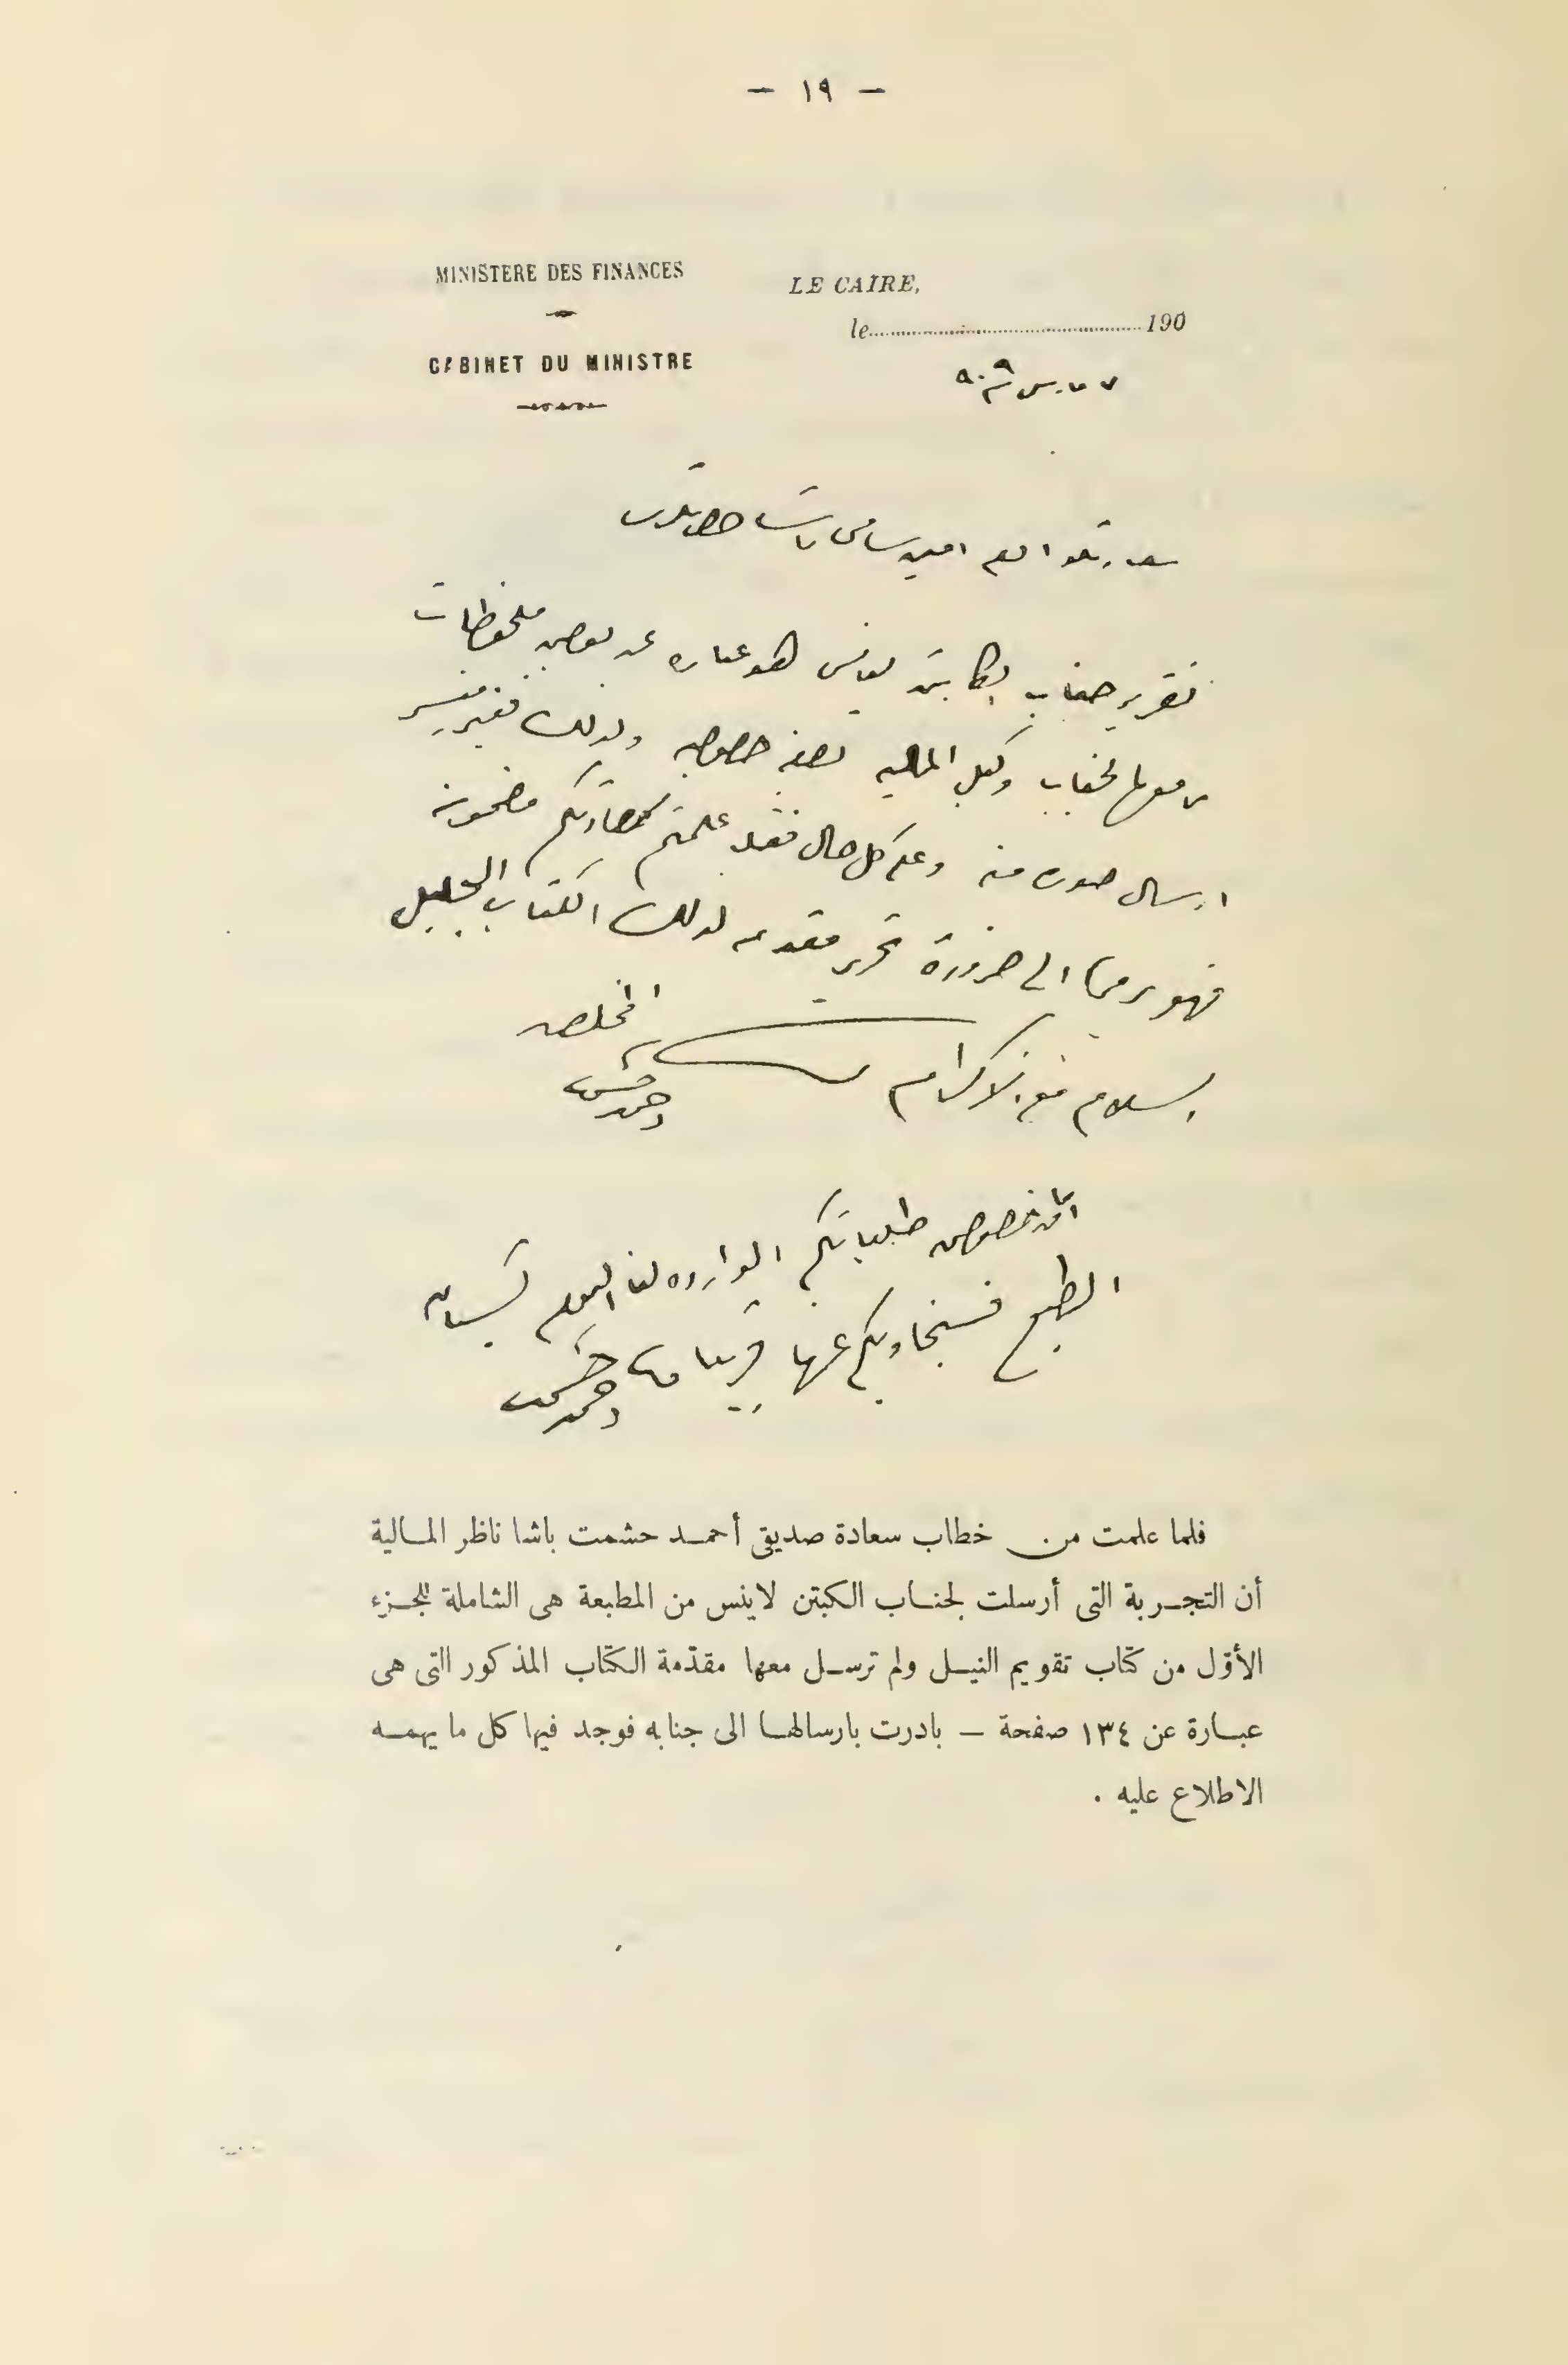 — ١٩ —
MINISTERE DES FINANCES
CABINET DU MINISTRE
LE CAIRE,
le 190
٧ مارس سنة ٩٠٩
سعادتلو افندم امين سامى باشا حضرتلرى
تقرير جناب الكابتن لاينس هو عباره عن بعض ملحوظات
رفعها لجناب وكيل الماليه بصفه خصوصيه ولذلك فغير متيسر
ارسال صوره منه وعلى كل حال فقد علمتم سعادتكم مضمونه
فهو يرمى الى ضرورة تحرير مقدمه لذلك الكتاب الجليل
والسلام مع الاكرام
المخلص
احمد حشمت
أما بخصوص طلباتكم الوارده لنا اليوم بشأن
الطبع فسنجاوبكم عنها قريبا
احمد حشمت
فلما علمت من خطاب سعادة صديقى أحمد حشمت باشا ناظر المالية
أن التجربة التى أرسلت لجناب الكبتن لاينس من المطبعة هى الشاملة للجزء
الأوّل من كتاب تقويم النيل ولم ترسل معها مقدّمة الكتاب المذكور التى هى
عبارة عن ١٣٤ صفحة — بادرت بارسالها الى جنابه فوجد فيها كل ما يهمه
الاطلاع عليه .